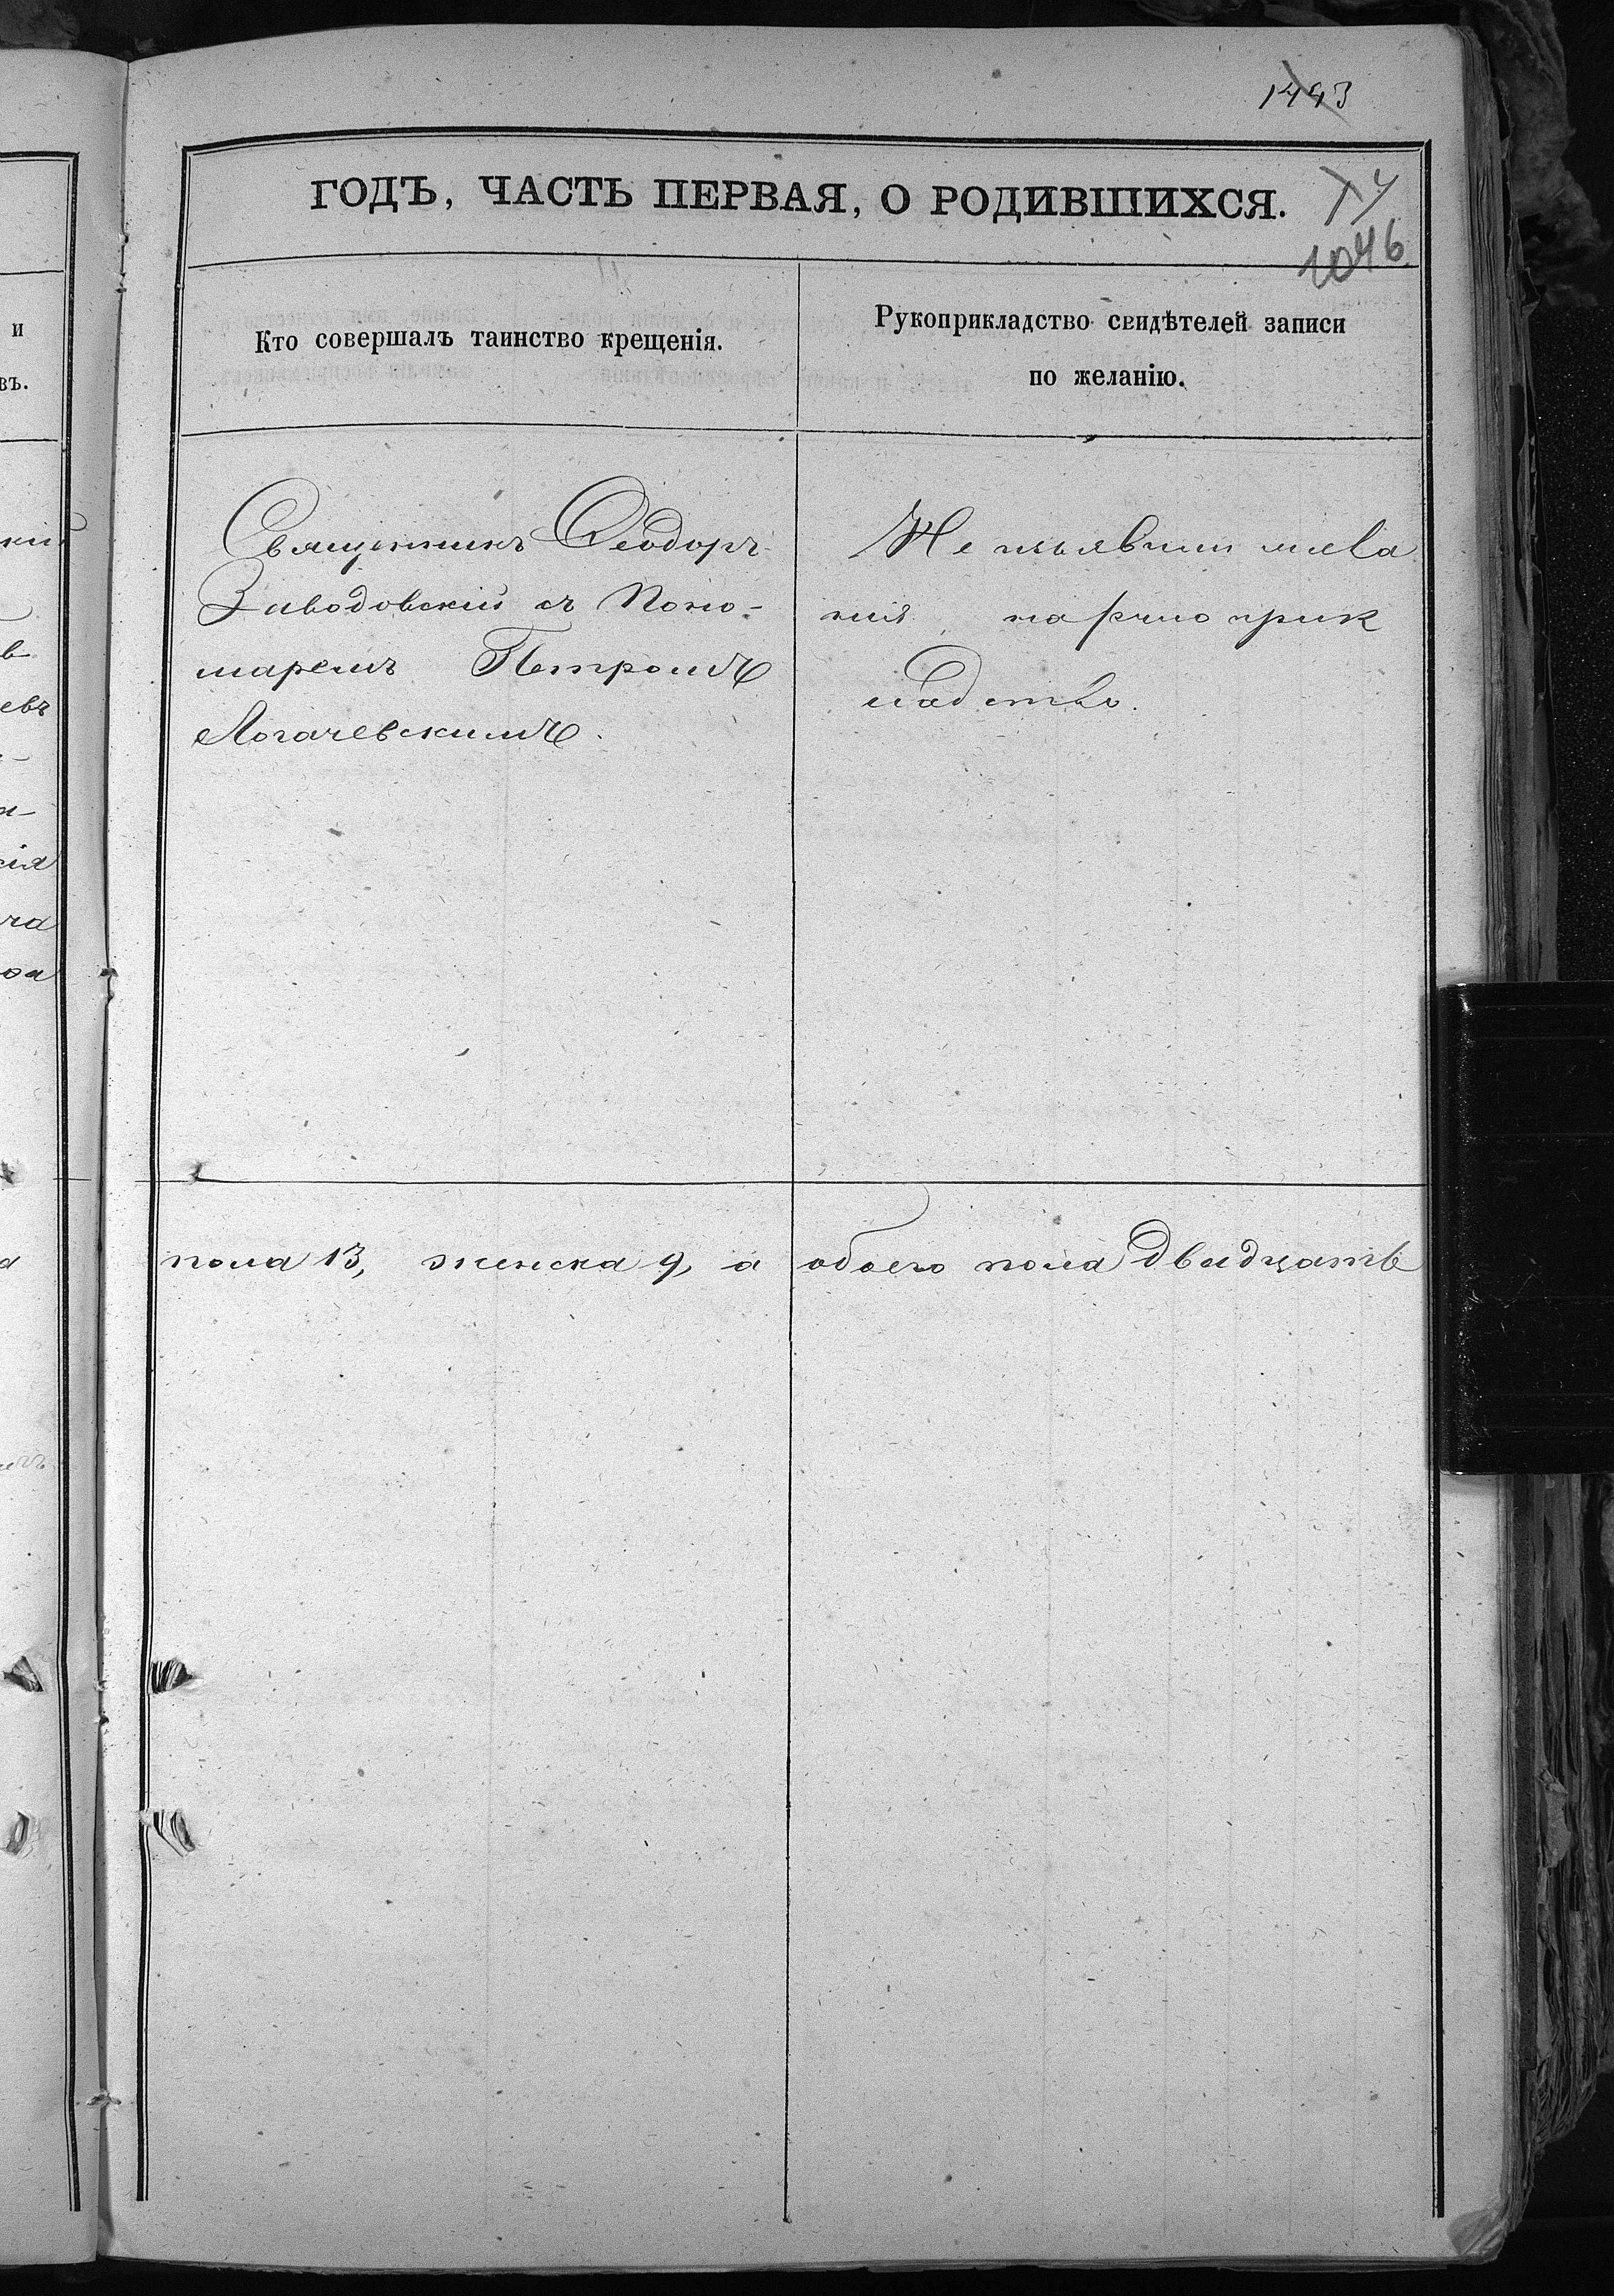 1493
ГОДЪ, ЧАСТЬ ПЕРВАЯ, О РОДИВШИХСЯ.
1046
и
въ.
Кто совершалъ таинство крещенія.
Рукоприкладство свидѣтелей записи
по желанію.
Священникъ Ѳеодоръ
Заводовскій съ Поно-
маремъ Петромъ
Логачевскимъ.
Не изъявили жела
нія на рукоприк
ладство.
пола 13, женска 9, а обоего пола двадцать